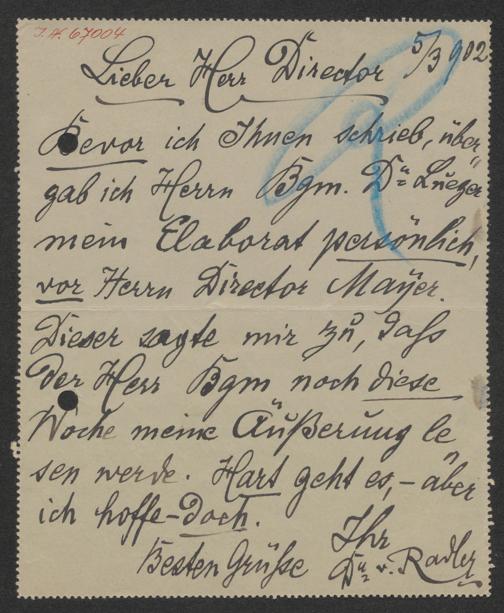 I.N. 67004
5/3 902
Lieber Herr Director
Bevor ich Ihnen schrieb, über-
gab ich Herrn Bgm. Dr Lueger
mein Elaborat persönlich,
vor Herrn Director Mayer.
Dieser sagte mir zu, dass
der Herr Bgm noch diese
Woche meine Äußerung le-
sen werde. Hart geht es, – aber
ich hoffe – doch.
Ihr
Besten Grüße Dr v. Radler